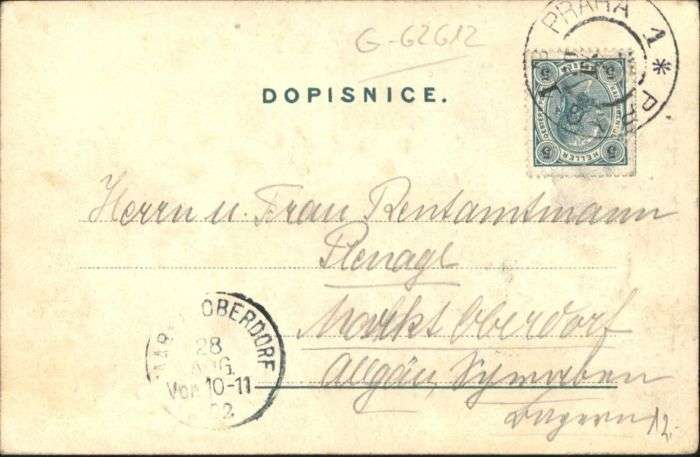 G-62612
PRAHA 1 *
5 5
HELLER HELLER
5 5
DOPISNICE.
Herrn u. Frau Rentamtmann
Markt Oberdorf
Allgäu, Schwaben
Bayern
MARKT OBERDORF
28
AUG.
Vor. 10-11
02